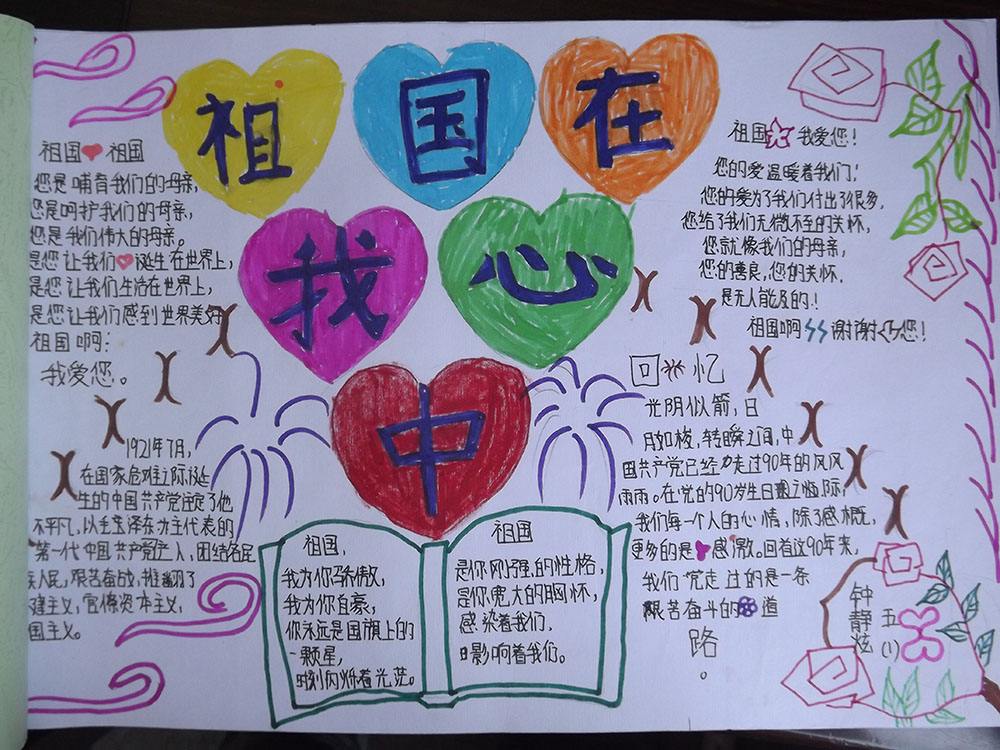 祖国在
我心
中
祖国 祖国
您是哺育我们的母亲,
您是呵护我们的母亲,
您是我们伟大的母亲。
是您让我们诞生在世界上,
是您让我们生活在世界上,
是您让我们感到世界美好
祖国啊:
我爱您。
1921年7月,
在国家危难之际诞
生的中国共产党注定了他
不平凡,以毛泽东为主代表的
第一代中国共产党人,团结各民
族人民,艰苦奋战,推翻了
建主义,官僚资本主义,
国主义。
祖国 我爱您!
您的爱温暖着我们!
您的爱为了我们付出了很多,
您给了我们无微不至的关怀,
您就像我们的母亲,
您的善良,您的关怀.
是无人能及的!
祖国啊 谢谢 您!
回 忆
光阴似箭,日
月如梭,转瞬之间,中
国共产党已经力走过90年的风风
雨雨。在党的90岁生日来之际,
我们每一个人的心情,除了感概,
更多的是 感激。回着这90年来,
我们党走过的是一条
艰苦奋斗的 道
路
。
祖国,
我为你骄傲,
我为你自豪,
你永远是国旗上的
一颗星,
时刻闪烁着光茫。
祖国
是你刚强的性格,
是你宽大的胸怀,
感染着我们.
影响着我们。
五(1)
钟静炫